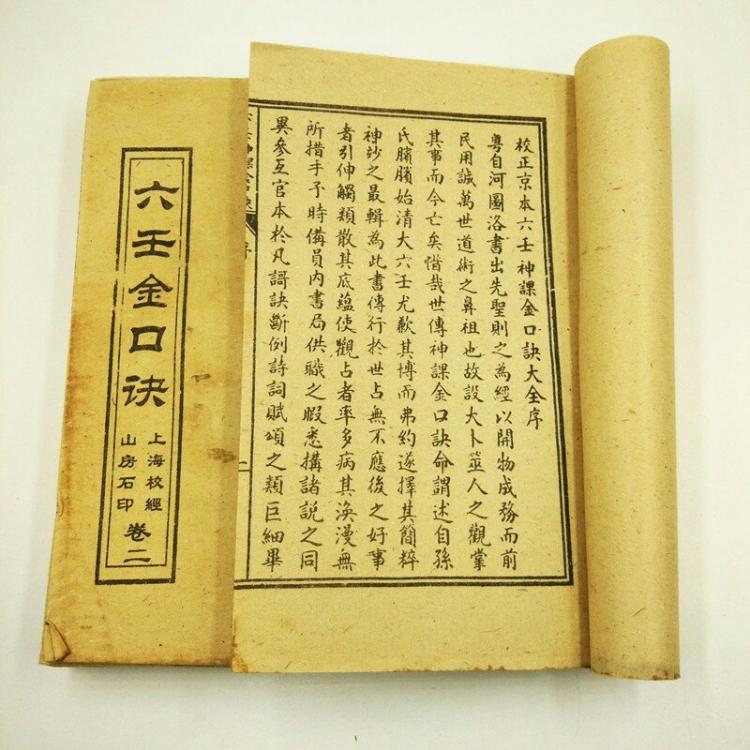 校正京本六壬神課金口訣大全序
粵自河圖洛書出先聖則之為經以開物成務而前
民用誠萬世道術之鼻祖也故設大卜筮人之觀掌
其事而今亡矣惜哉世傳神課金口訣命謂述自孫
氏臏臏始清大六壬尤歉其博而弗約遂擇其簡粹
神玅之最輯為此書傳行於世占無不應後之好事
者引伸觸類散其底蘊使觀占者率多病其渙漫無
所措手予時備員內書局供職之暇悉搆諸說之同
異參互官本於凡謌訣斷例詩詞賦頌之類巨細畢
六壬金口诀
上海校經
山房石印
卷二